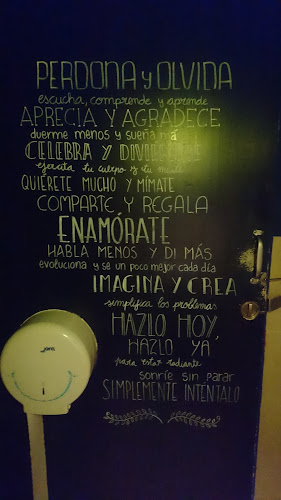 PERDONA y OLVIDA
escucha, comprende y aprende
APRECIA Y AGRADECE
duerme menos y sueña más
CELEBRA Y DIVIÉRTETE
ejercita tu cuerpo y tu mente
QUIÉRETE MUCHO Y MÍMATE
COMPARTE Y REGALA
ENAMÓRATE
HABLA MENOS Y DI MÁS
evoluciona y se un poco mejor cada día
IMAGINA Y CREA
simplifica los problemas
HAZLO HOY,
HAZLO YA
para estar radiante
sonríe sin parar
SIMPLEMENTE INTÉNTALO